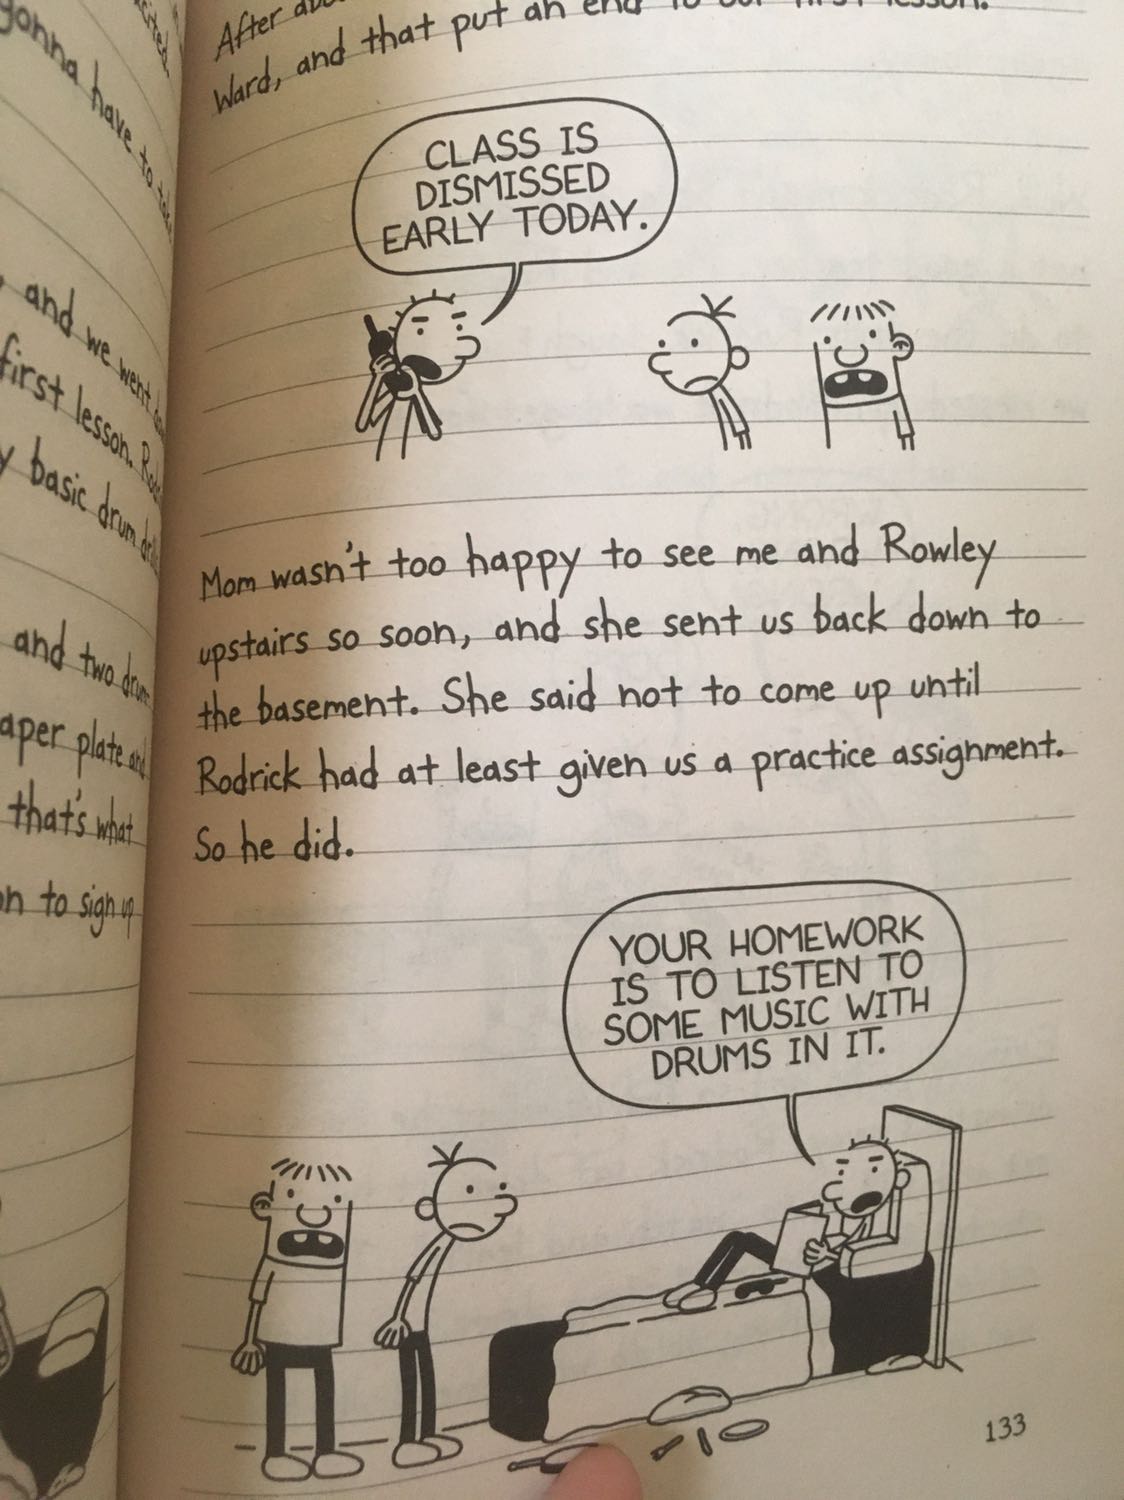 cited.
gonna have to take
and we went
first lesson.
basic drum
and two
paper plate and
that's what
to sign up
After
Ward, and that put an end to our first lesson.
CLASS IS
DISMISSED
EARLY TODAY.
Mom wasn't too happy to see me and Rowley
upstairs so soon, and she sent us back down to
the basement. She said not to come up until
Rodrick had at least given us a practice assignment.
So he did.
YOUR HOMEWORK
IS TO LISTEN TO
SOME MUSIC WITH
DRUMS IN IT.
133